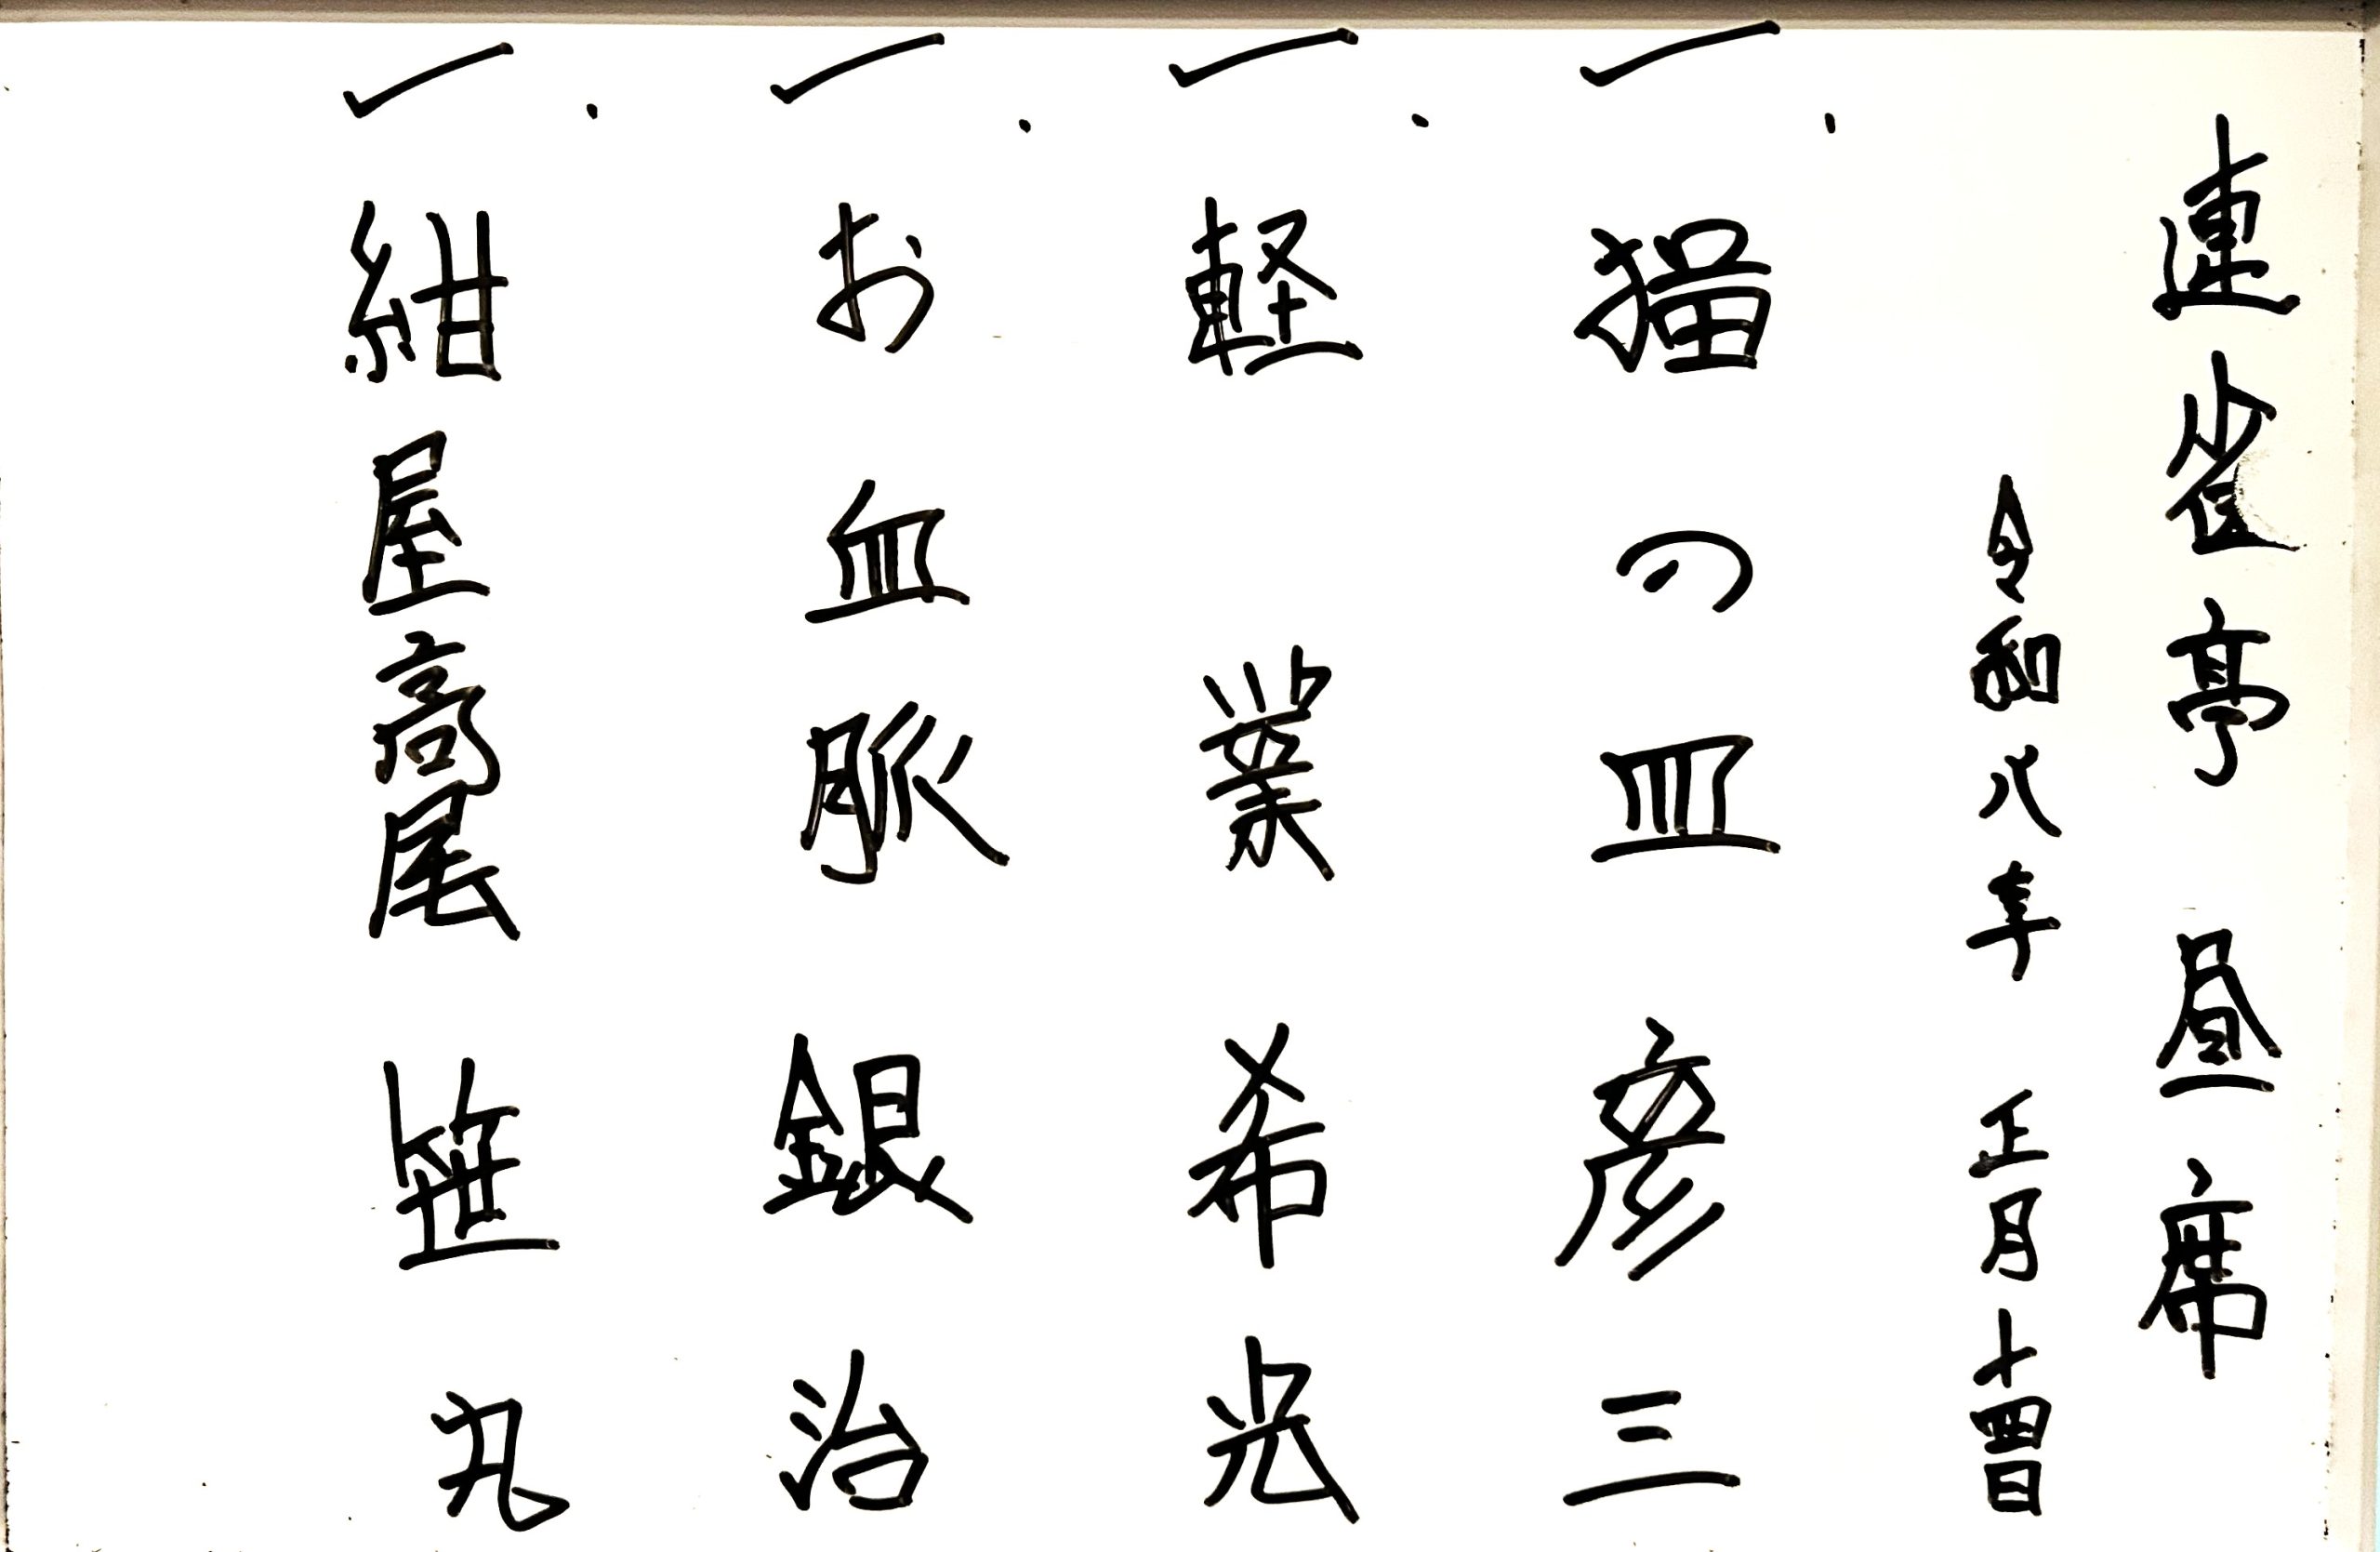 連雀亭 昼席
令和八年 正月十四日
一、猫の皿 彦三
一、軽業 希光
一、お血脈 銀治
一、紺屋高尾 笹丸